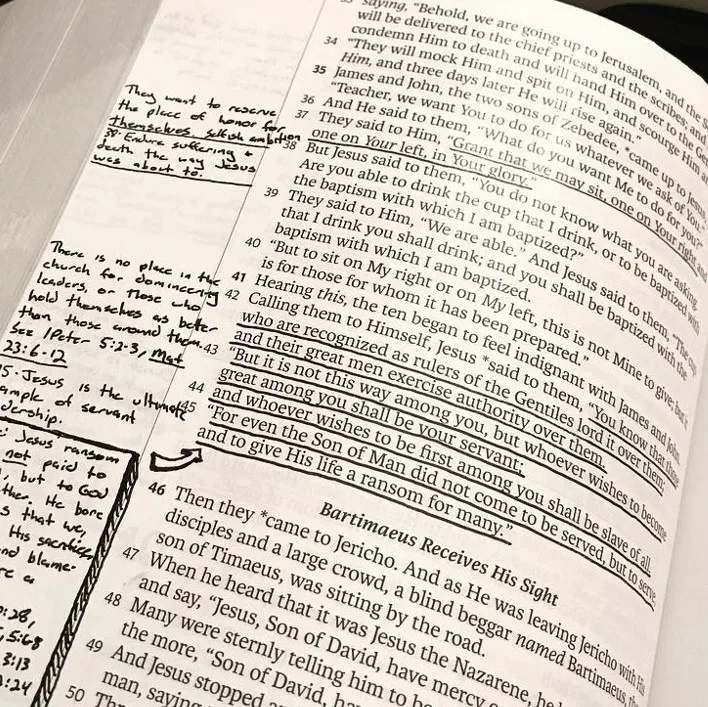 They want to reserve
the place of honor for
themselves selfish ambition
38. Endure suffering +
death the way Jesus
was about to.
There is no place in the
church for domineering
leaders, or those who
hold themselves as better
than those around them.
See 1 Peter 5:2-3, Mat
23:6-12
Jesus is the ultimate
ample of servant
dership.
Jesus' ransom
not paid to
, but to God
ther. He bore
s that we,
His sacrifice,
nd blame-
re a
:28,
5:6-8
3:13
:24
saying, "Behold, we are going up to Jerusalem, and the S
will be delivered to the chief priests and the scribes; and
condemn Him to death and will hand Him over to the Ge
34 "They will mock Him and spit on Him, and scourge Him a
Him, and three days later He will rise again."
35 James and John, the two sons of Zebedee, *came up to Jesus
"Teacher, we want You to do for us whatever we ask of You."
36 And He said to them, "What do you want Me to do for you?"
37 They said to Him, "Grant that we may sit, one on Your right and
one on Your left, in Your glory."
38 But Jesus said to them, "You do not know what you are asking.
Are you able to drink the cup that I drink, or to be baptized with
the baptism with which I am baptized?"
39 They said to Him, "We are able." And Jesus said to them, "The cup
that I drink you shall drink; and you shall be baptized with the
baptism with which I am baptized.
40 "But to sit on My right or on My left, this is not Mine to give; but it
is for those for whom it has been prepared."
41 Hearing this, the ten began to feel indignant with James and John.
42 Calling them to Himself, Jesus *said to them, "You know that those
who are recognized as rulers of the Gentiles lord it over them;
and their great men exercise authority over them.
43 "But it is not this way among you, but whoever wishes to become
great among you shall be your servant;
44 and whoever wishes to be first among you shall be slave of all.
45 "For even the Son of Man did not come to be served, but to serve
and to give His life a ransom for many."
Bartimaeus Receives His Sight
46 Then they *came to Jericho. And as He was leaving Jericho with His
disciples and a large crowd, a blind beggar named Bartimaeus, the
son of Timaeus, was sitting by the road.
47 When he heard that it was Jesus the Nazarene, he
and say, "Jesus, Son of David, have mercy
48 Many were sternly telling him to be
the more, "Son of David,
49 And Jesus stopped
man, saying
50